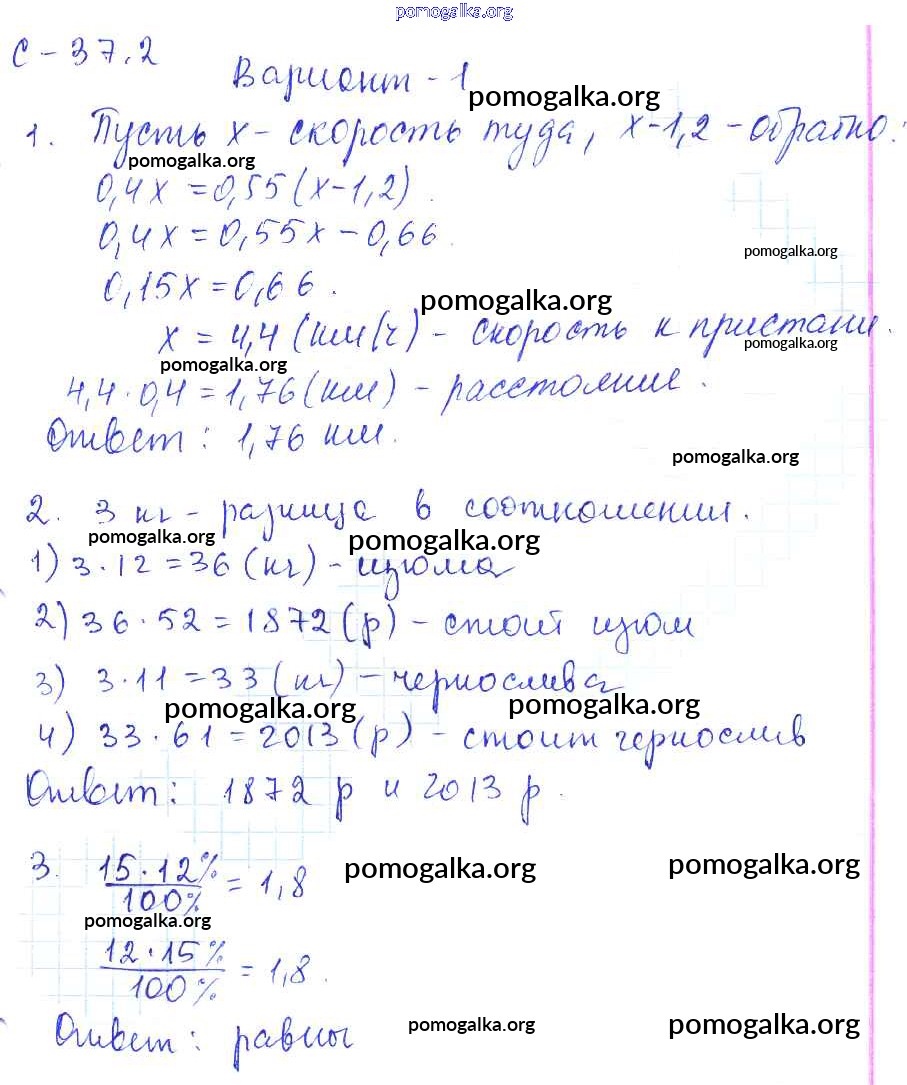 pomogalka.org
С-37.2
Вариант-1
pomogalka.org
1. Пусть х- скорость туда, х-1,2-обратно.
pomogalka.org
0,4х =0,55(х-1,2).
0,4х=0,55х-0,66.
pomogalka.org
0,15х=0,66.
pomogalka.org
х = 4,4 (км/ч) - скорость к пристани.
pomogalka.org
pomogalka.org
4,4·0,4=1,76(км) - расстояние.
Ответ: 1,76 км.
pomogalka.org
2. 3 кг - разница в соотношении.
pomogalka.org
pomogalka.org
1) 3·12=36 (кг) - изюма
2) 36·52=1872(р) - стоит изюм
3) 3·11=33 (кг) - чернослива
pomogalka.org
pomogalka.org
4) 33·61=2013(р) - стоит чернослив
Ответ: 1872 р и 2013 р.
3. 15·12%/100% = 1,8
pomogalka.org
pomogalka.org
pomogalka.org
12·15%/100% = 1,8.
Ответ: равны
pomogalka.org
pomogalka.org